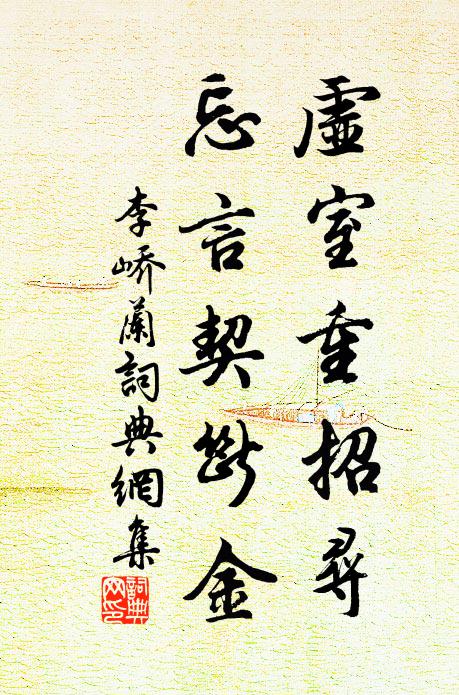 虛室重招尋
忘言契斷金
李嶠蘭詞典網集
詞典網印